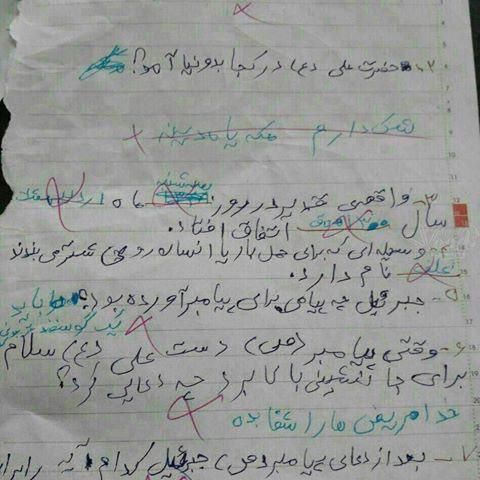 ۲- حضرت علی (ع) در کجا بدونیا آمد؟
شک دارم مکه یا مدینه
۳- واقعی غدیر در روز پنج شنبه ماه اردیبهشت
سال اتفاق افتاد.
۴- وسیله ای که برای حمل بار یا انسان روی شتر می بندند
نام دارد.
۵- جبرئیل چه پیامی برای پیامبر آورده بود؟ باید
یک گوسفند قربونی
۶- وقتی پیامبر (ص) دست علی (ع) سلام
برای جانشینی بالا برد چه دعایی کرد؟
خدا مریض ها را شفا بده
۷- بعد از دعای پیامبر (ص) جبرئیل کدام آیه را برای